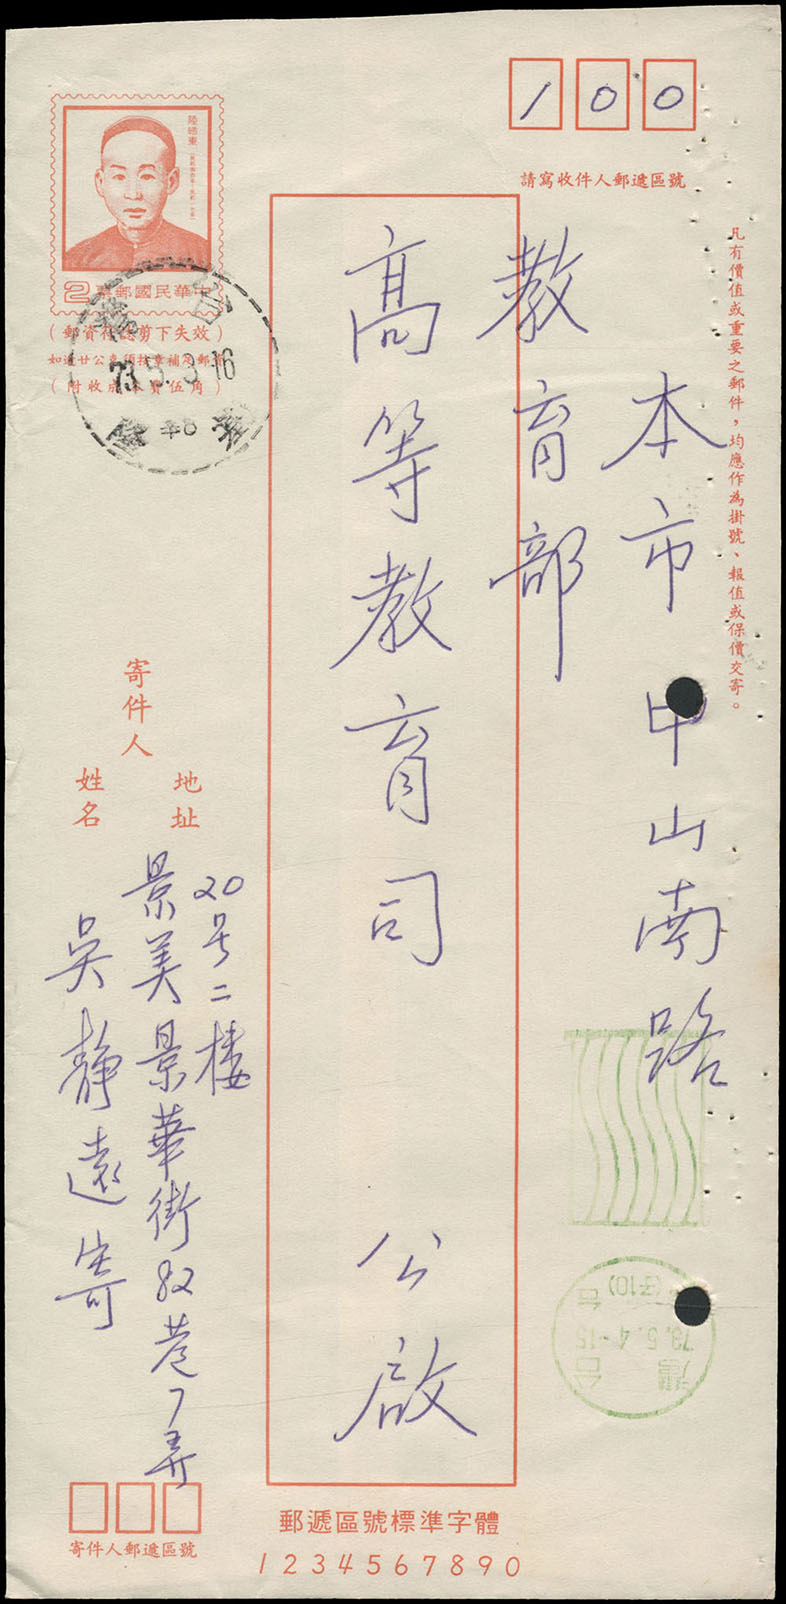 100
請寫收件人郵遞區號
凡有價值或重要之郵件，均應作為掛號、報值或保價交寄。
本市中山南路
教育部
高等教育司 公啟
陸皓東
2 中華民國郵票
(郵資符誌剪下失效)
(附收成本費伍角)
73.5.3.16
寄件人
地址
姓名
景美景華街82巷7弄
20号二楼
吳靜遠寄
台灣
73.5.4-15
寄件人郵遞區號
郵遞區號標準字體
1234567890